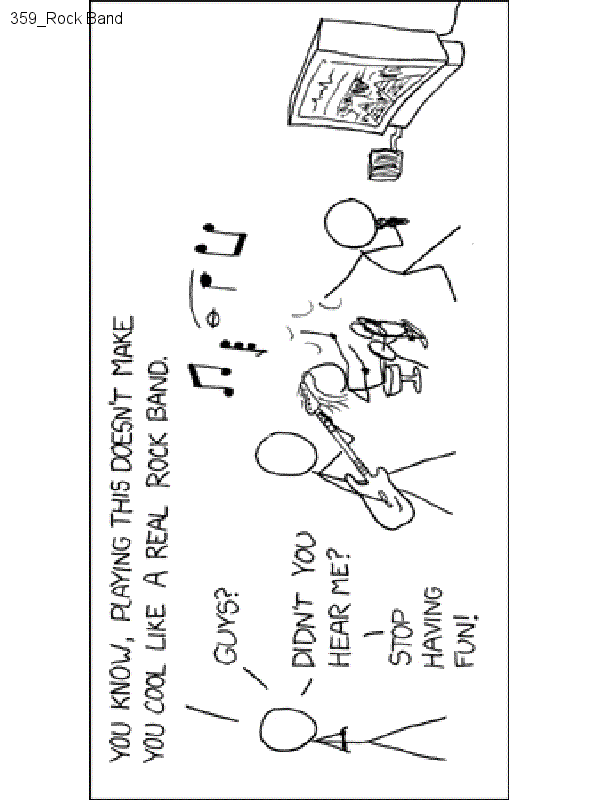 359_Rock Band
YOU KNOW, PLAYING THIS DOESN'T MAKE
YOU COOL LIKE A REAL ROCK BAND.
GUYS?
DIDN'T YOU
HEAR ME?
STOP
HAVING
FUN!